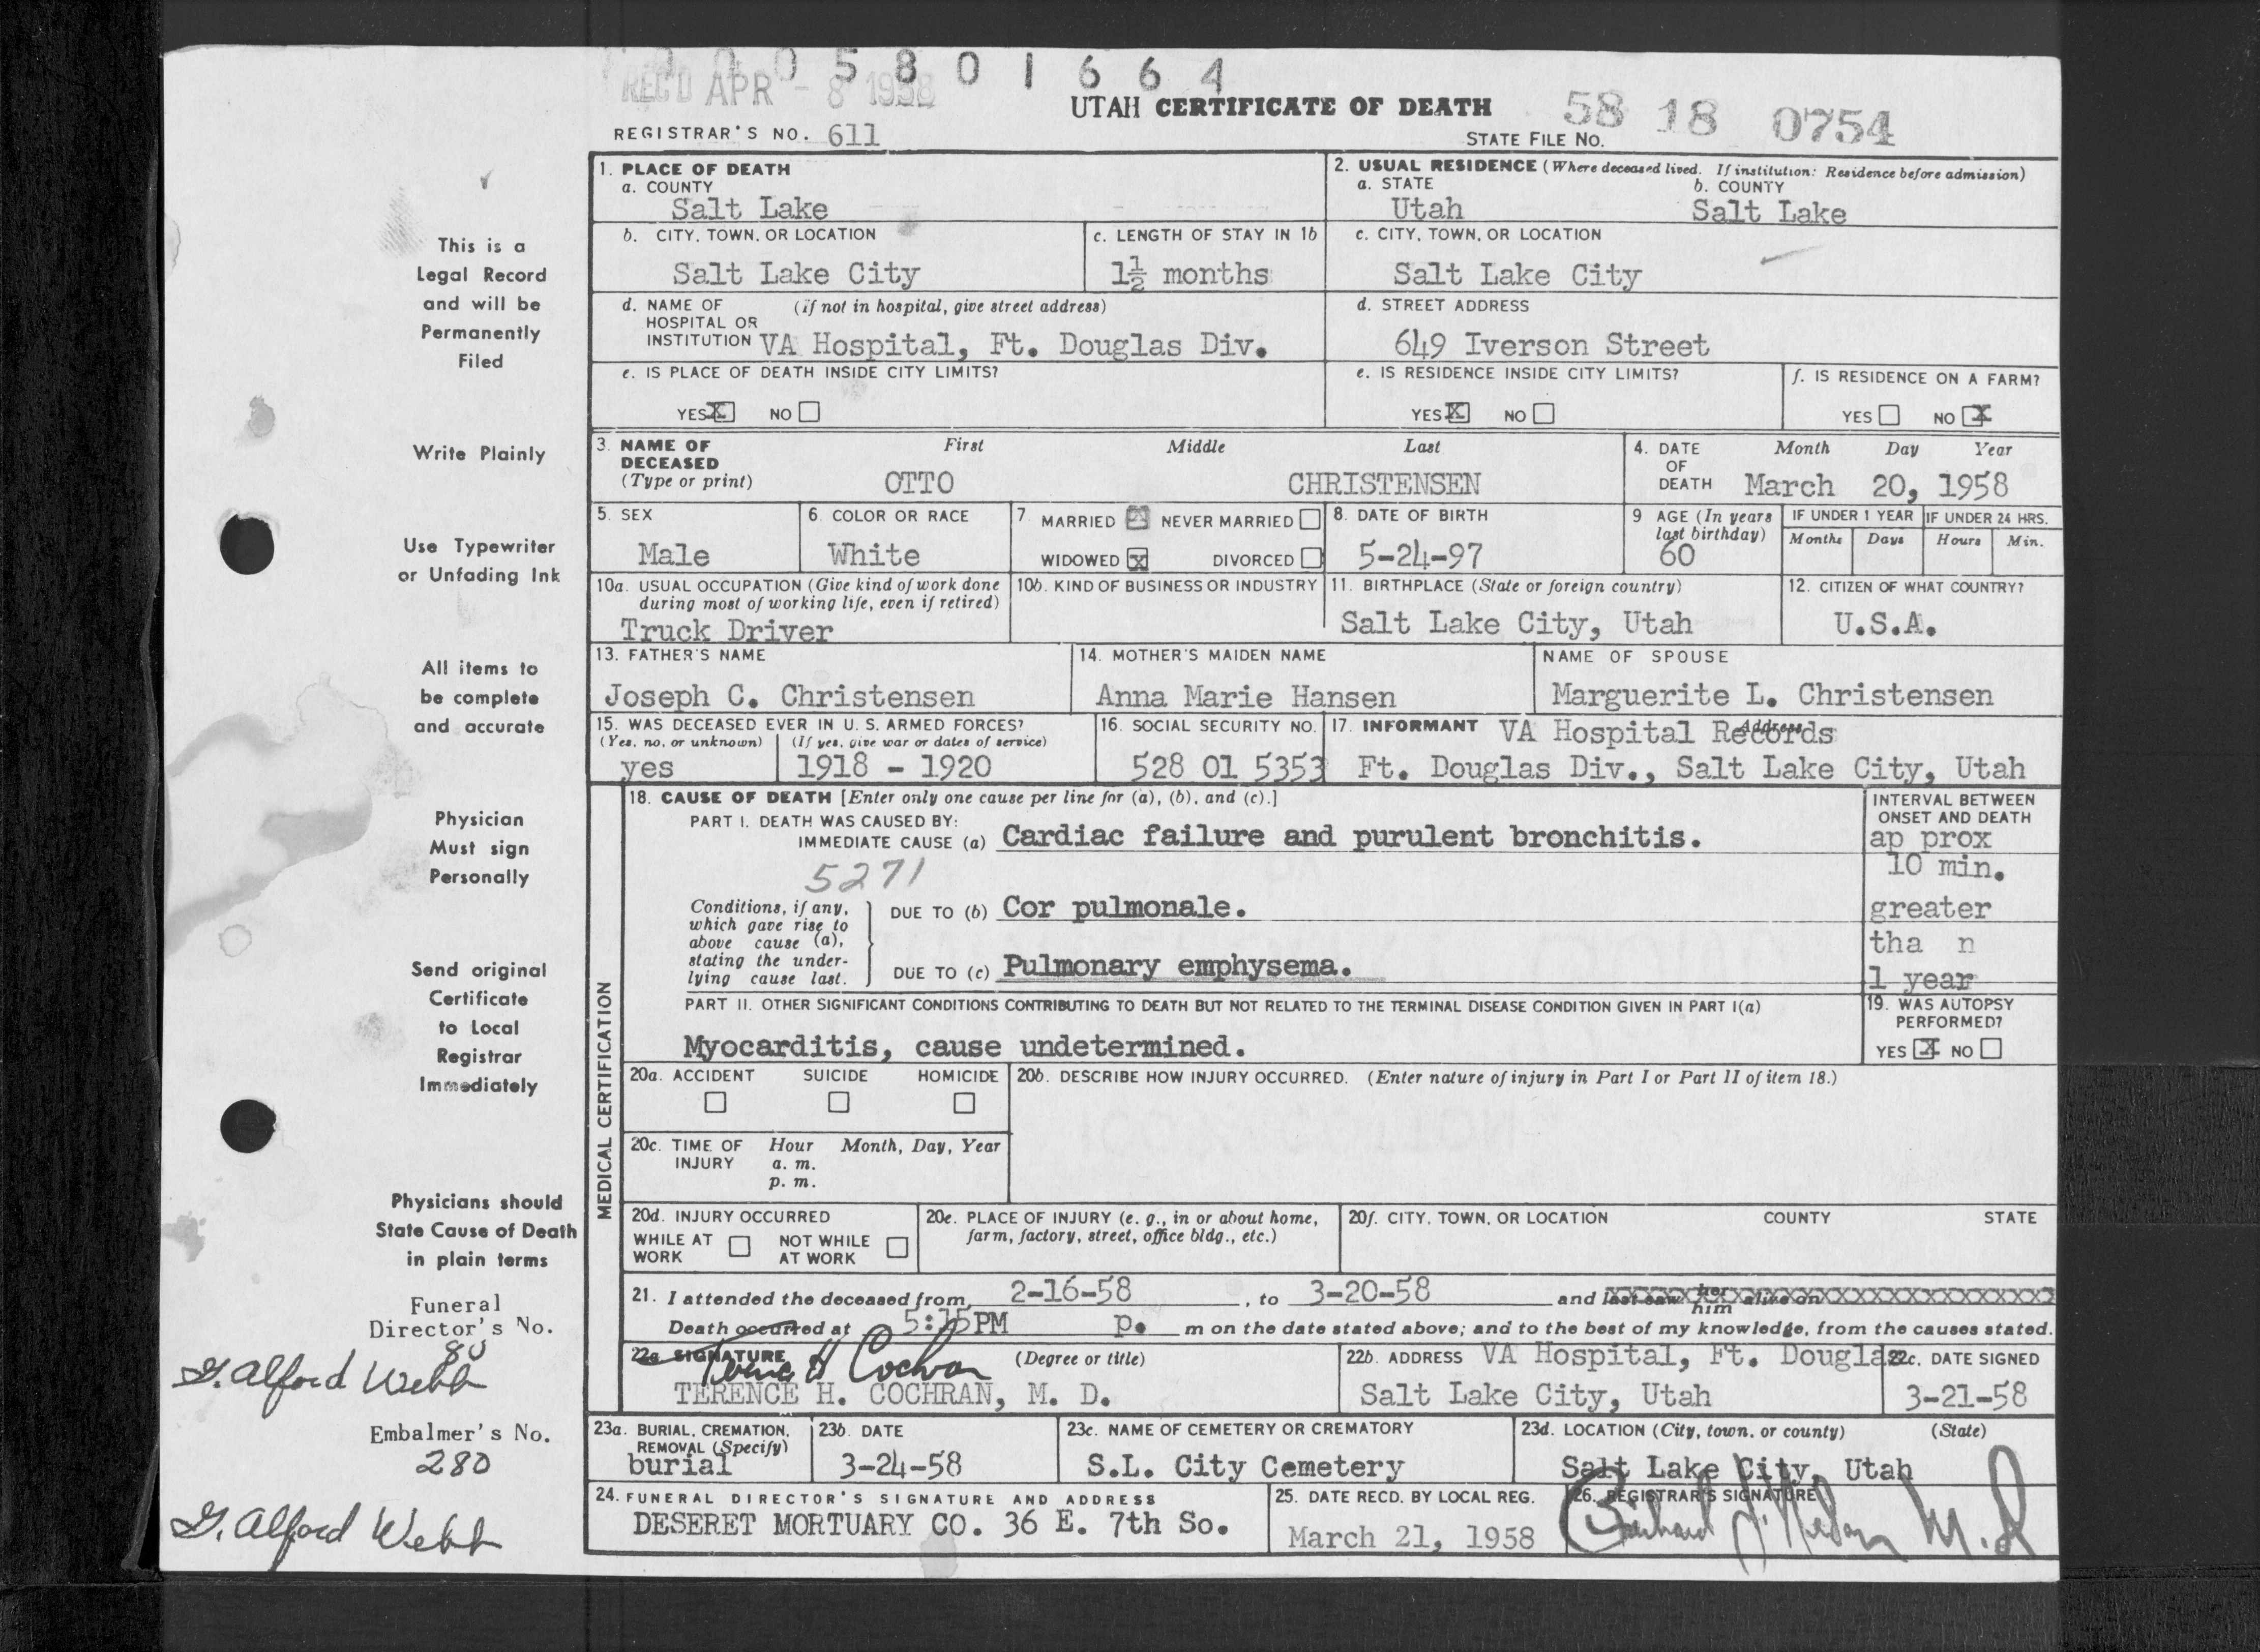 1 0 0 0 5 8 0 1 6 6 4
REC'D APR - 8 1958
UTAH CERTIFICATE OF DEATH
58 18 0754
REGISTRAR'S NO. 611
STATE FILE NO.
This is a
Legal Record
and will be
Permanently
Filed
Write Plainly
Use Typewriter
or Unfading Ink
All items to
be complete
and accurate
Physician
Must sign
Personally
Send original
Certificate
to Local
Registrar
Immediately
Physicians should
State Cause of Death
in plain terms
Funeral
Director's No.
80
G. Alford Webb
Embalmer's No.
280
G. Alford Webb
1. PLACE OF DEATH
a. COUNTY
Salt Lake
2. USUAL RESIDENCE (Where deceased lived. If institution: Residence before admission)
a. STATE b. COUNTY
Utah Salt Lake
b. CITY, TOWN, OR LOCATION
Salt Lake City
c. LENGTH OF STAY IN 1b
1½ months
c. CITY, TOWN, OR LOCATION
Salt Lake City
d. NAME OF (if not in hospital, give street address)
HOSPITAL OR
INSTITUTION VA Hospital, Ft. Douglas Div.
d. STREET ADDRESS
649 Iverson Street
e. IS PLACE OF DEATH INSIDE CITY LIMITS?
YES X NO
e. IS RESIDENCE INSIDE CITY LIMITS?
YES X NO
f. IS RESIDENCE ON A FARM?
YES NO X
3. NAME OF First Middle Last
DECEASED
(Type or print) OTTO CHRISTENSEN
4. DATE Month Day Year
OF
DEATH March 20, 1958
5. SEX
Male
6. COLOR OR RACE
White
7 MARRIED NEVER MARRIED
WIDOWED X DIVORCED
8. DATE OF BIRTH
5-24-97
9 AGE (In years
last birthday)
60
IF UNDER 1 YEAR IF UNDER 24 HRS.
Months Days Hours Min.
10a. USUAL OCCUPATION (Give kind of work done
during most of working life, even if retired)
Truck Driver
10b. KIND OF BUSINESS OR INDUSTRY
11. BIRTHPLACE (State or foreign country)
Salt Lake City, Utah
12. CITIZEN OF WHAT COUNTRY?
U.S.A.
13. FATHER'S NAME
Joseph C. Christensen
14. MOTHER'S MAIDEN NAME
Anna Marie Hansen
NAME OF SPOUSE
Marguerite L. Christensen
15. WAS DECEASED EVER IN U. S. ARMED FORCES?
(Yes, no, or unknown) (If yes, give war or dates of service)
yes 1918 - 1920
16. SOCIAL SECURITY NO.
528 01 5353
17. INFORMANT VA Hospital Records Address
Ft. Douglas Div., Salt Lake City, Utah
MEDICAL CERTIFICATION
18. CAUSE OF DEATH [Enter only one cause per line for (a), (b), and (c).]
PART I. DEATH WAS CAUSED BY:
IMMEDIATE CAUSE (a) Cardiac failure and purulent bronchitis.
5271
Conditions, if any,
which gave rise to
above cause (a),
stating the under-
lying cause last.
DUE TO (b) Cor pulmonale.
DUE TO (c) Pulmonary emphysema.
INTERVAL BETWEEN
ONSET AND DEATH
ap prox
10 min.
greater
tha n
1 year
PART II. OTHER SIGNIFICANT CONDITIONS CONTRIBUTING TO DEATH BUT NOT RELATED TO THE TERMINAL DISEASE CONDITION GIVEN IN PART I(a)
Myocarditis, cause undetermined.
19. WAS AUTOPSY
PERFORMED?
YES X NO
20a. ACCIDENT SUICIDE HOMICIDE
20b. DESCRIBE HOW INJURY OCCURRED. (Enter nature of injury in Part I or Part II of item 18.)
20c. TIME OF Hour Month, Day, Year
INJURY a. m.
p. m.
20d. INJURY OCCURRED
WHILE AT NOT WHILE
WORK AT WORK
20e. PLACE OF INJURY (e. g., in or about home,
farm, factory, street, office bldg., etc.)
20f. CITY, TOWN, OR LOCATION COUNTY STATE
21. I attended the deceased from 2-16-58, to 3-20-58 and last saw her him alive on
Death occurred at 5:15PM p. m on the date stated above; and to the best of my knowledge, from the causes stated.
22a. SIGNATURE (Degree or title)
Terence H Cochran
TERENCE H. COCHRAN, M. D.
22b. ADDRESS VA Hospital, Ft. Douglas
Salt Lake City, Utah
22c. DATE SIGNED
3-21-58
23a. BURIAL, CREMATION,
REMOVAL (Specify)
burial
23b. DATE
3-24-58
23c. NAME OF CEMETERY OR CREMATORY
S.L. City Cemetery
23d. LOCATION (City, town, or county) (State)
Salt Lake City, Utah
24. FUNERAL DIRECTOR'S SIGNATURE AND ADDRESS
DESERET MORTUARY CO. 36 E. 7th So.
25. DATE RECD. BY LOCAL REG.
March 21, 1958
26. REGISTRAR'S SIGNATURE
M.D.